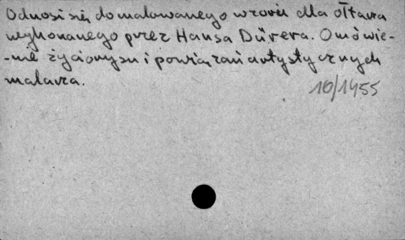 Odnosi się do malowanego wzoru dla ołtarza
wykonanego przez Hansa Dürera. Omówie-
-nie życiorysu i powiązań artystycznych
malarza.
10/1455